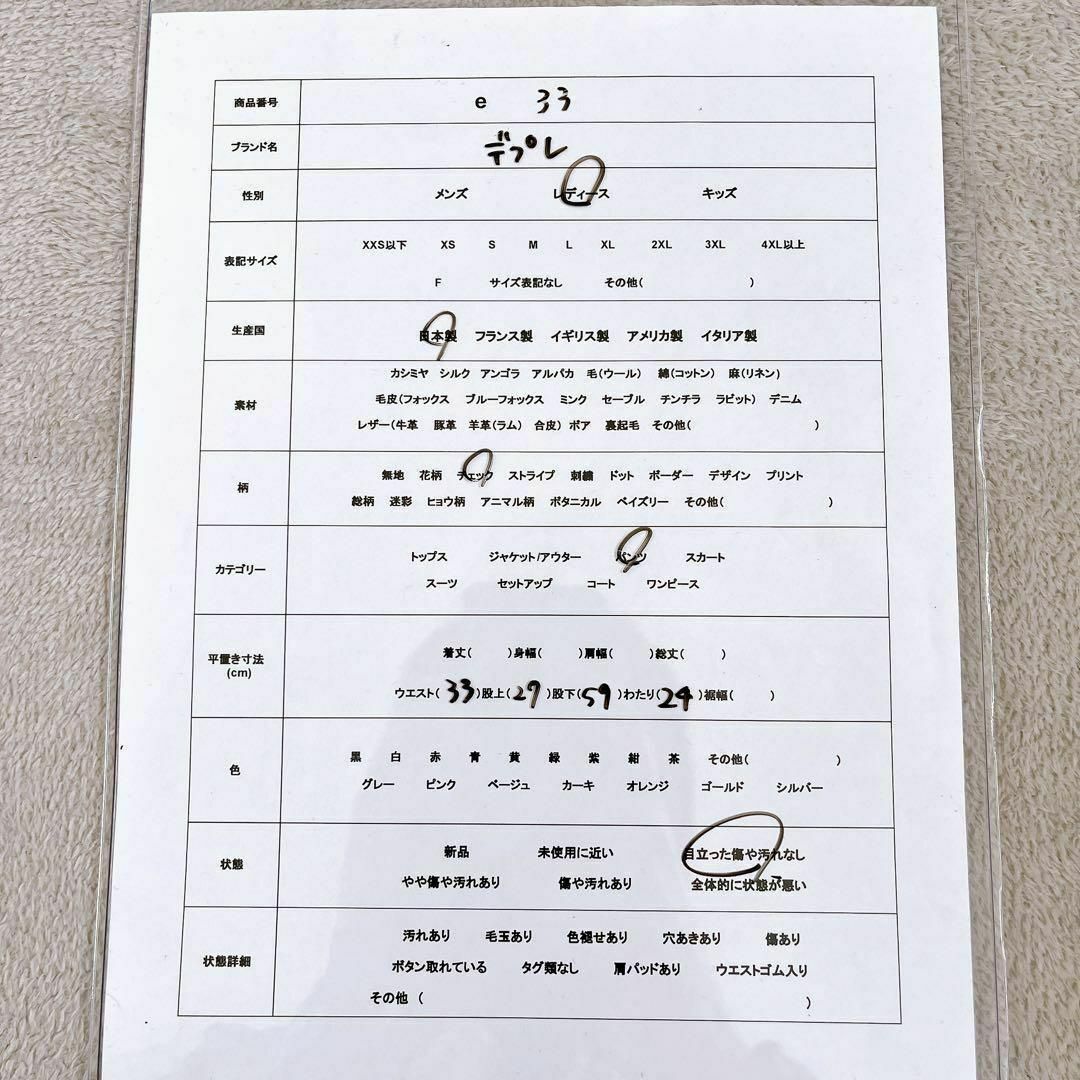 商品番号 e 33
ブランド名 デプレ
性別 メンズ レディース キッズ
表記サイズ XXS以下 XS S M L XL 2XL 3XL 4XL以上
F サイズ表記なし その他( )
生産国 日本製 フランス製 イギリス製 アメリカ製 イタリア製
カシミヤ シルク アンゴラ アルパカ 毛(ウール) 綿(コットン) 麻(リネン)
素材 毛皮(フォックス ブルーフォックス ミンク セーブル チンチラ ラビット) デニム
レザー(牛革 豚革 羊革(ラム) 合皮) ボア 裏起毛 その他( )
柄 無地 花柄 チェック ストライプ 刺繍 ドット ボーダー デザイン プリント
総柄 迷彩 ヒョウ柄 アニマル柄 ボタニカル ペイズリー その他( )
カテゴリー トップス ジャケット/アウター パンツ スカート
スーツ セットアップ コート ワンピース
平置き寸法 着丈( )身幅( )肩幅( )総丈( )
(cm) ウエスト(33)股上(29)股下(59)わたり(24)裾幅( )
色 黒 白 赤 青 黄 緑 紫 紺 茶 その他( )
グレー ピンク ベージュ カーキ オレンジ ゴールド シルバー
状態 新品 未使用に近い 目立った傷や汚れなし
やや傷や汚れあり 傷や汚れあり 全体的に状態が悪い
状態詳細 汚れあり 毛玉あり 色褪せあり 穴あきあり 傷あり
ボタン取れている タグ類なし 肩パッドあり ウエストゴム入り
その他 ( )